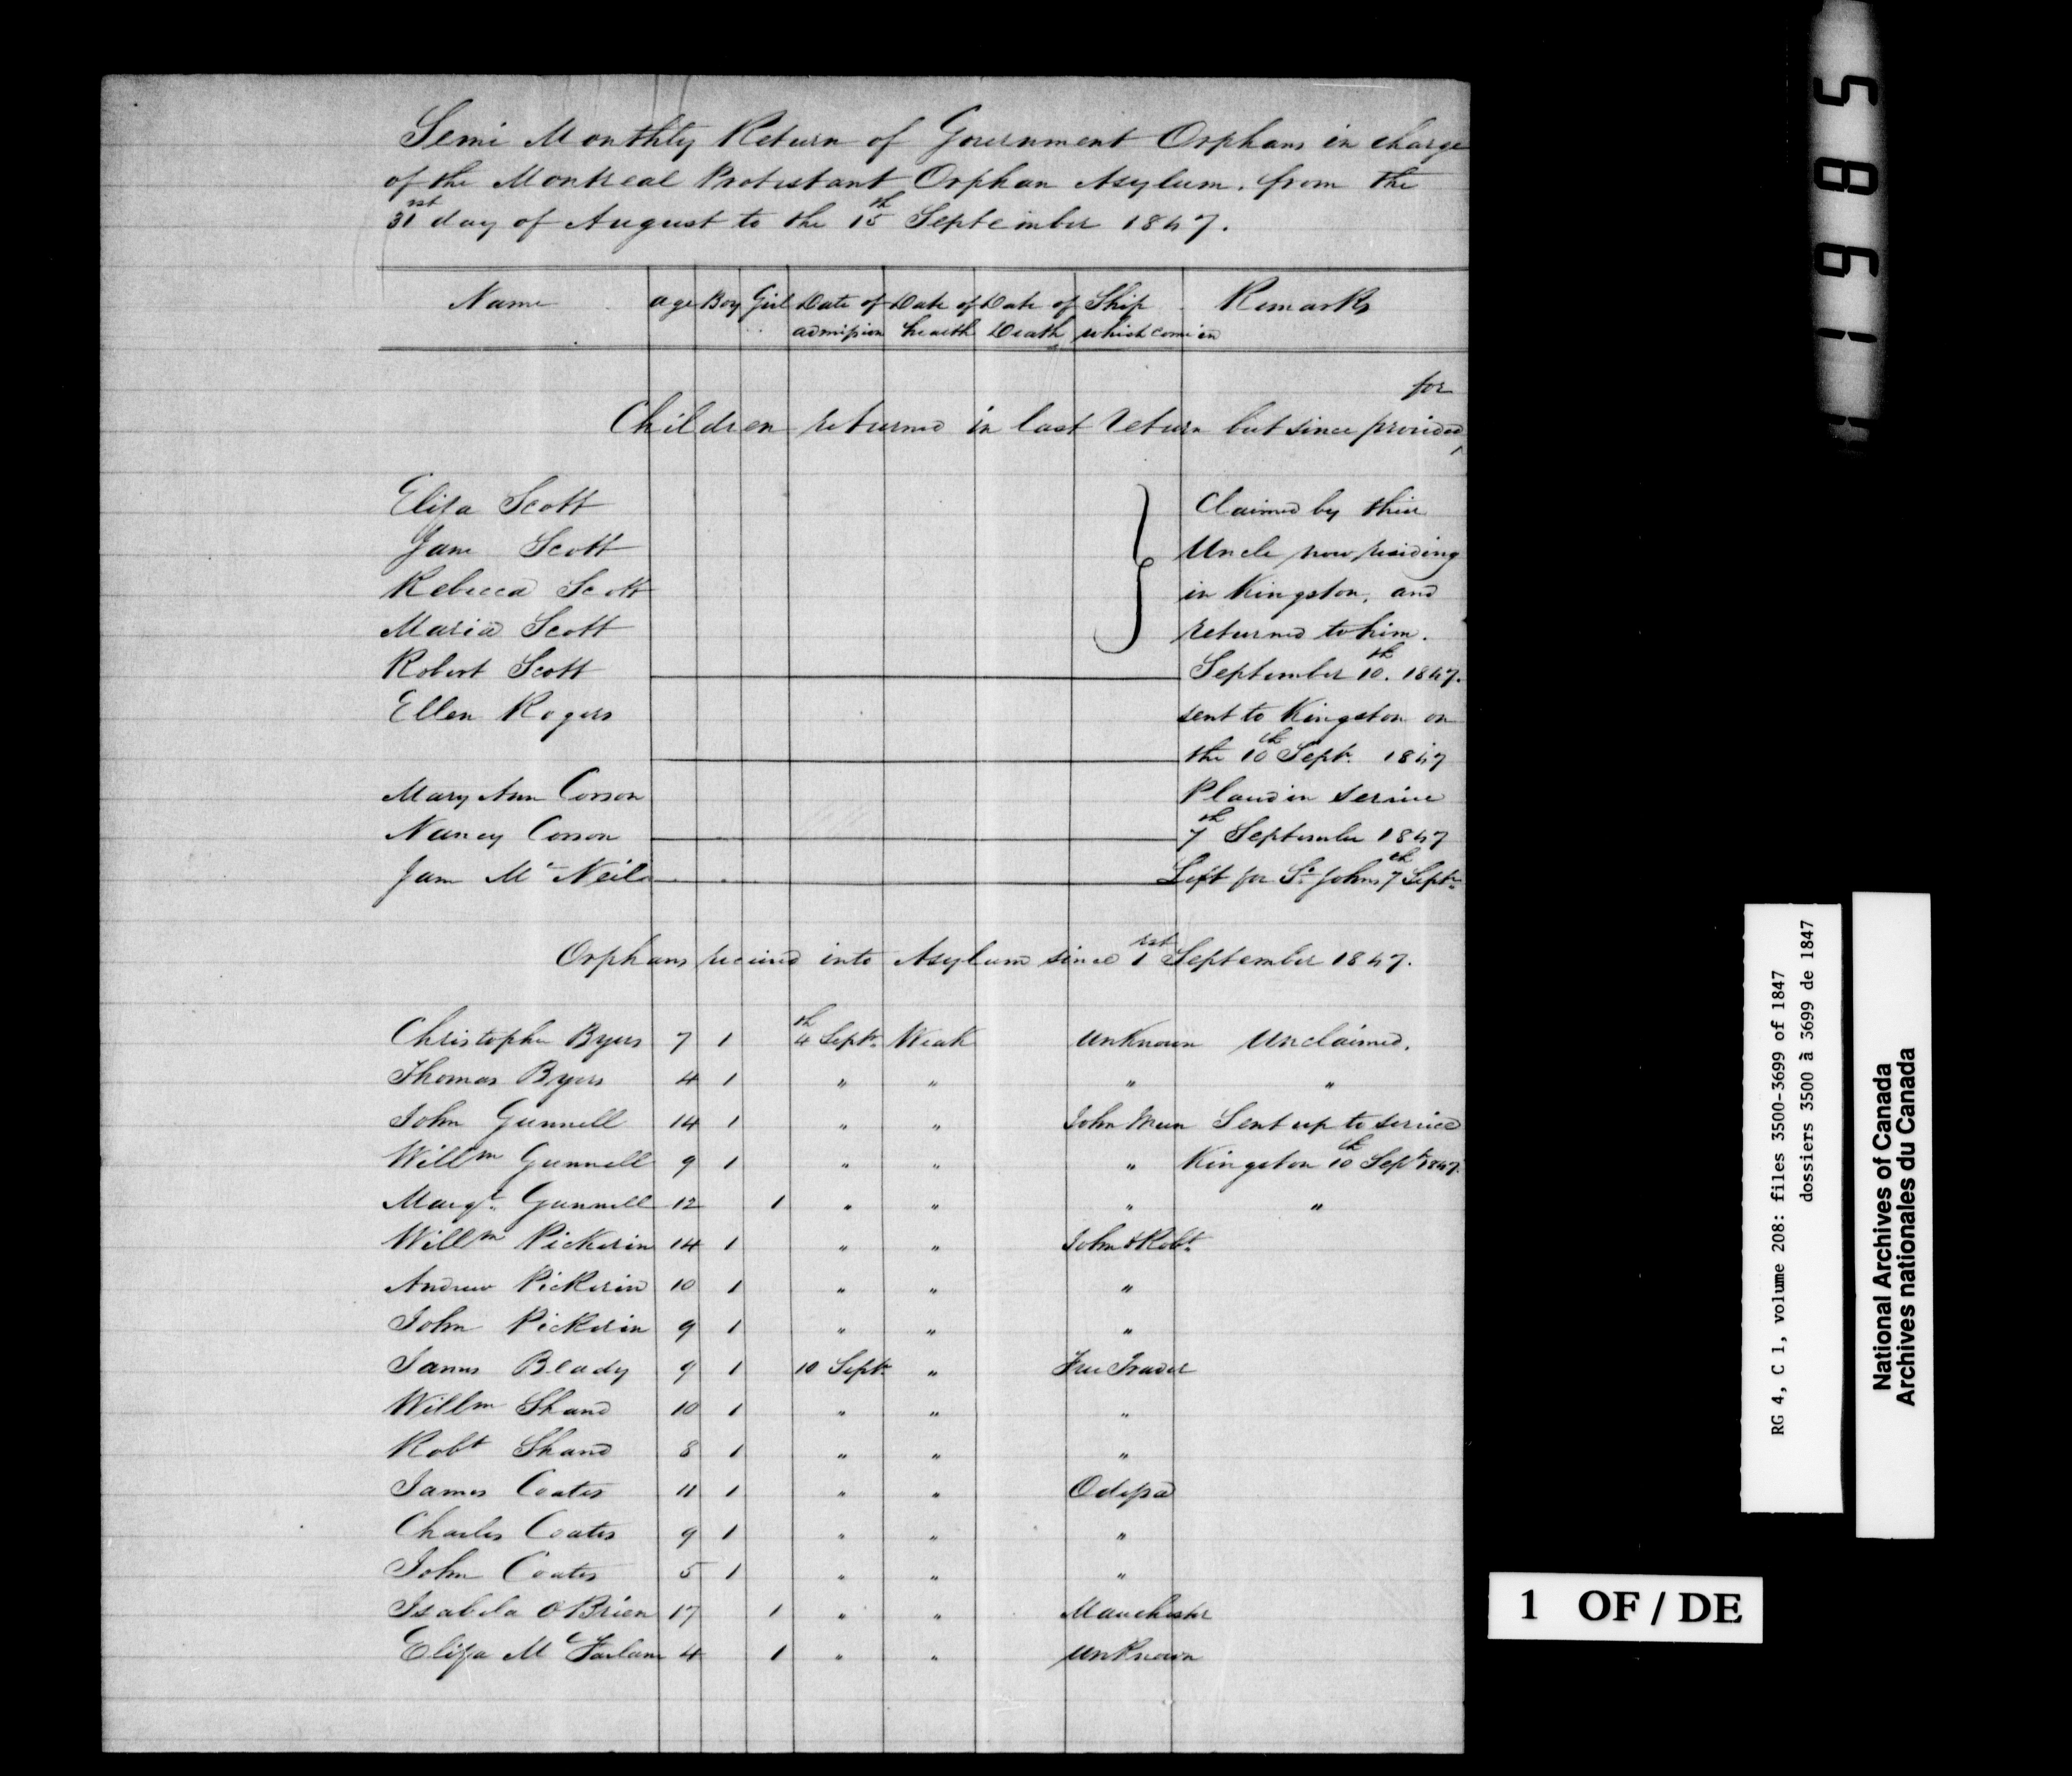 Semi Monthly Return of Government Orphans in charge
of the Montreal Protestant Orphan Asylum. from the
31rst day of August to the 15th September 1847.
Name age Boy Girl Date of admission Date of health Date of Death Ship which came in Remarks
Children returned in last return but since provided for
Eliza Scott Claimed by their
Jane Scott Uncle now residing
Rebecca Scott in Kingston, and
Maria Scott returned to him.
Robert Scott September 10th. 1847.
Ellen Rogers sent to Kingston on
the 10th Septr. 1847
Mary Ann Corson Placed in service
Nancy Corson 7th September 1847
Jane McNeil Left for St. Johns 7th Septr.
Orphans received into Asylum since 1rst September 1847.
Christopher Byers 7 1 4th Septr. Weak unknown Unclaimed.
Thomas Byers 4 1 " " " "
John Gunnell 14 1 " " John Munn Sent up to service
Willm Gunnell 9 1 " " " Kingston 10th Sept 1847.
Margt. Gunnell 12 1 " " " "
Willm Pickerin 14 1 " " John & Robt.
Andrew Pickerin 10 1 " " "
John Pickerin 9 1 " " "
James Bleady 9 1 10 Septr. " Free Trader
Willm Shand 10 1 " " "
Robt Shand 8 1 " " "
James Coates 11 1 " " Odessa
Charles Coates 9 1 " " "
John Coates 5 1 " " "
Isabela O'Brien 17 1 " " Manchester
Eliza McFarlane 4 1 " " unknown
1691
5891
RG 4, C 1, volume 208: files 3500-3699 of 1847
dossiers 3500 à 3699 de 1847
National Archives of Canada
Archives nationales du Canada
1 OF / DE